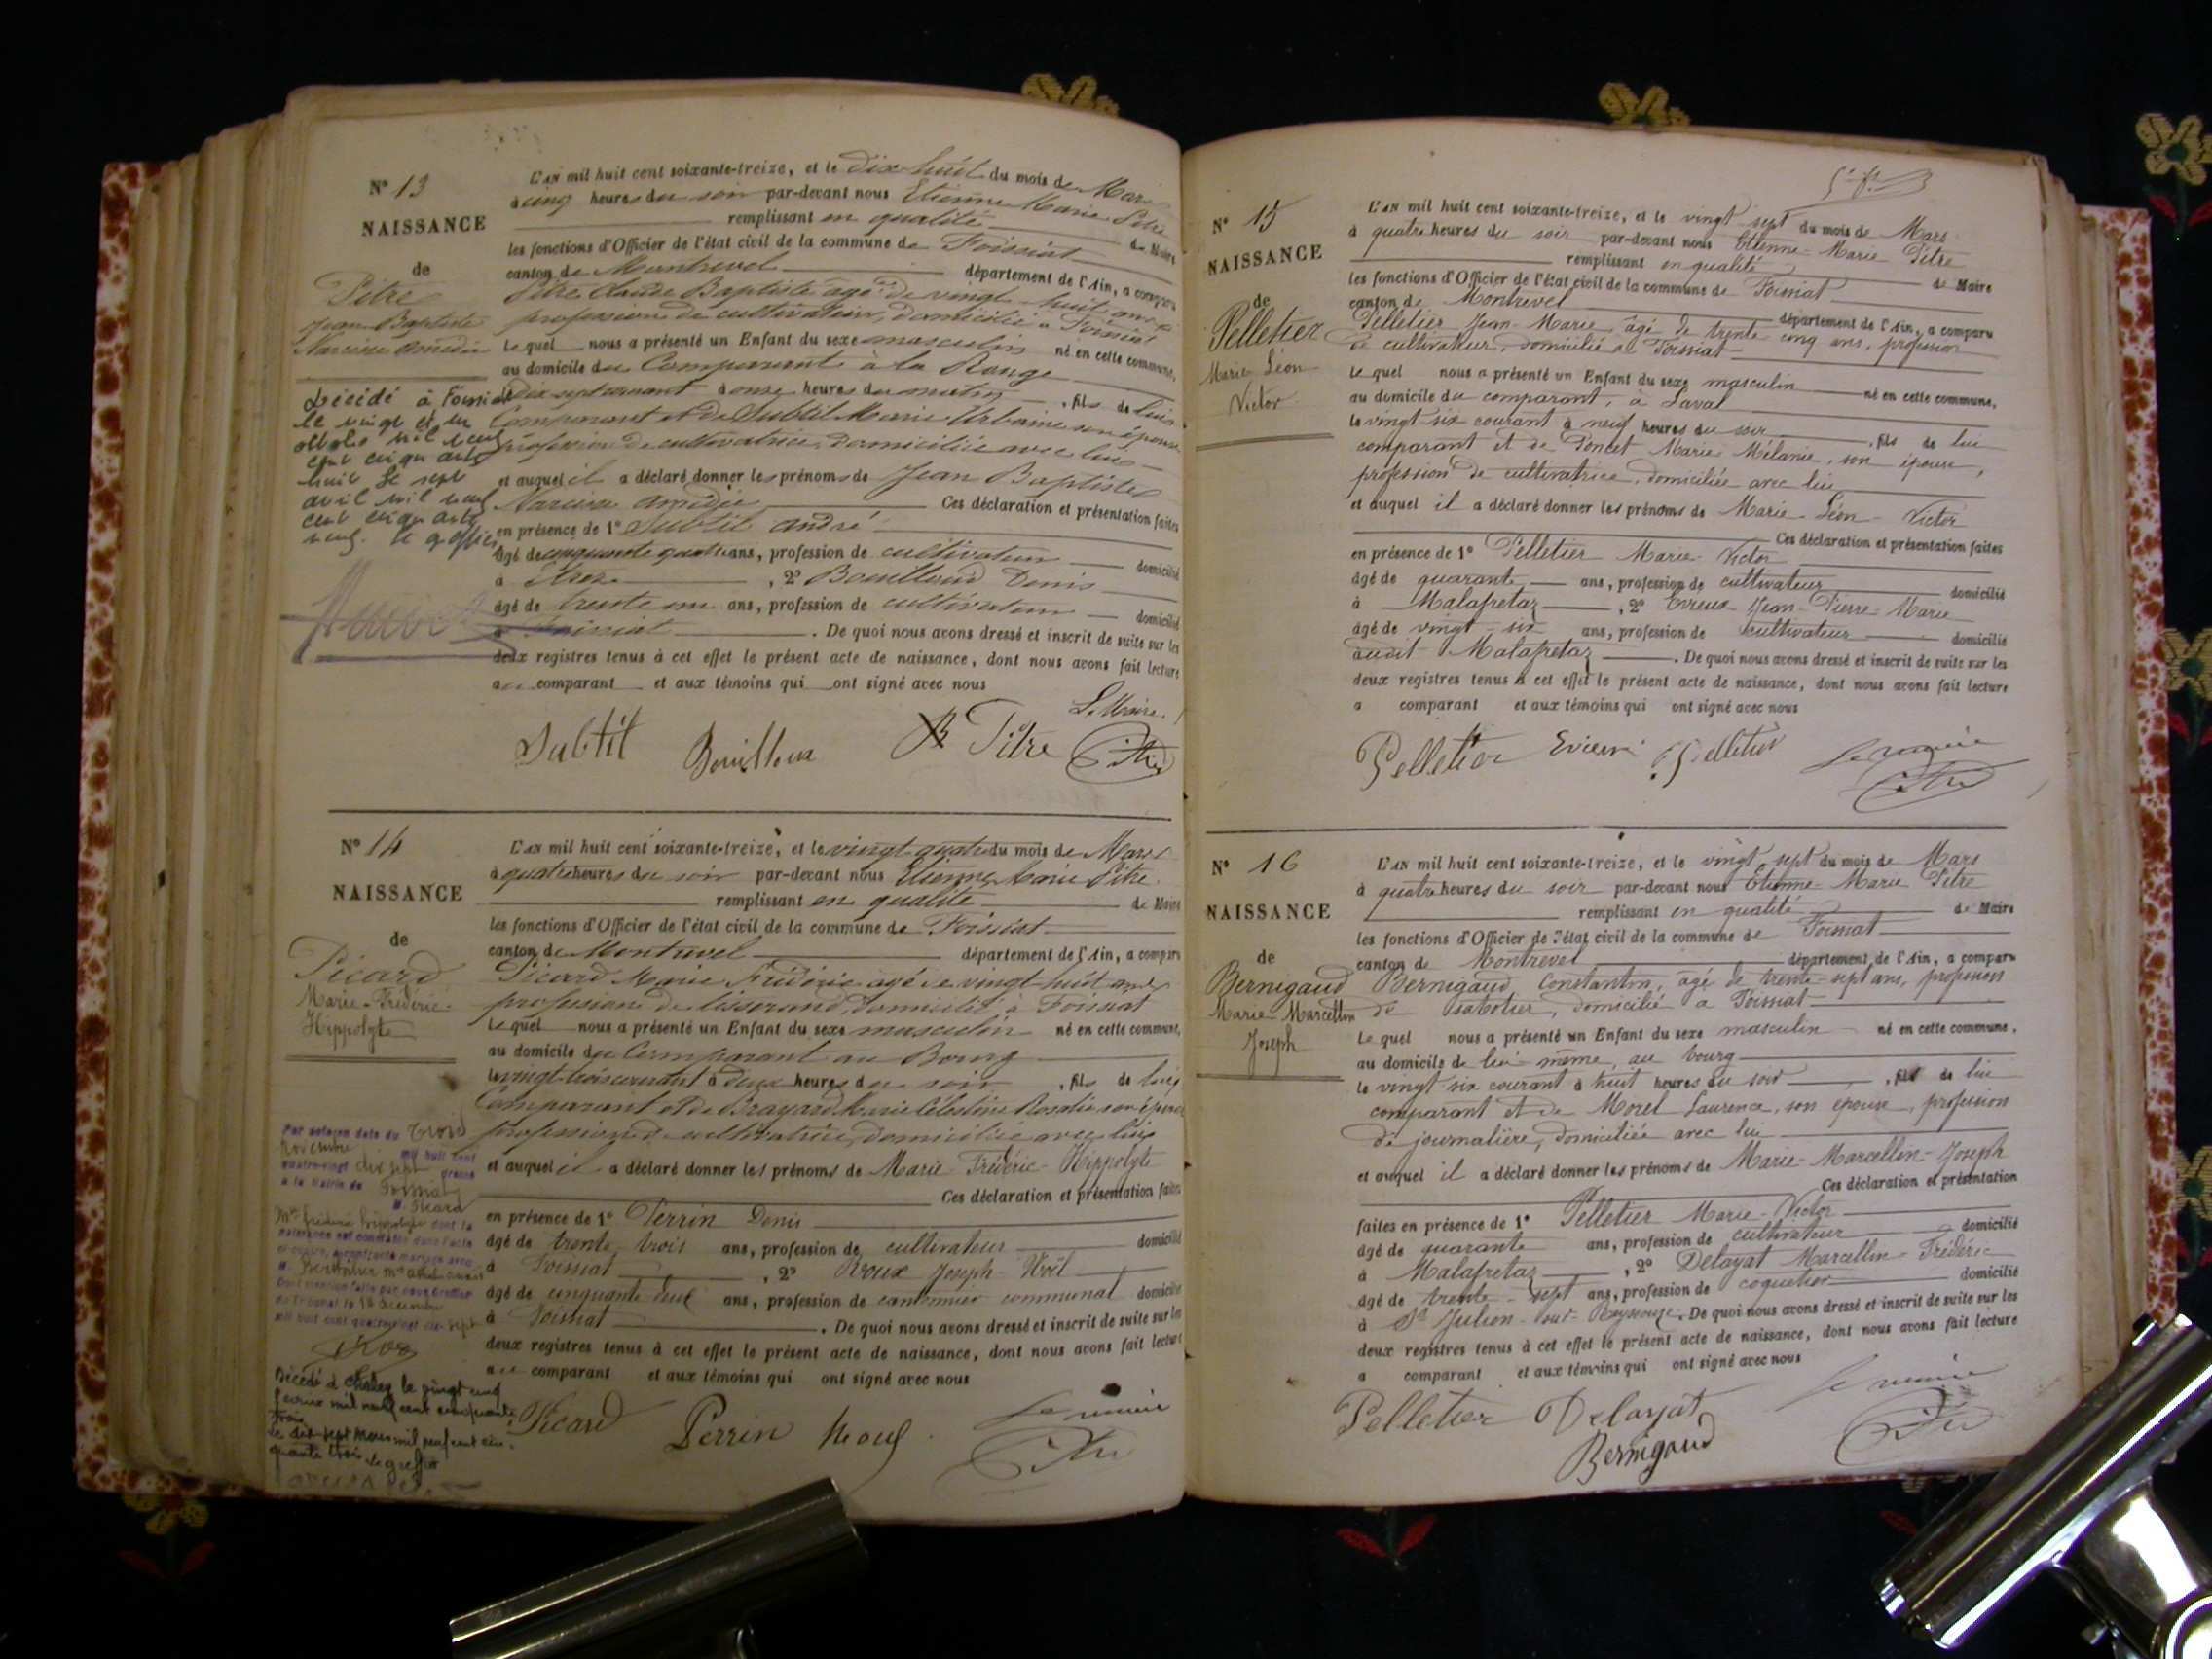 N° 13
NAISSANCE
de
Pitre
Jean Baptiste
Narcisse Amédée
Décédé à Foissiat
le vingt et un
octobre mil neuf
cent cinquante
huit Le sept
avril mil neuf
cent cinquante
neuf. Le greffier
L'AN mil huit cent soixante-treize, et le dix huit du mois de Mars
à cinq heures du soir par-devant nous Etienne Marie Pitre
remplissant en qualité de Maire
les fonctions d'Officier de l'état civil de la commune de Foissiat
canton de Montrevel département de l'Ain, a comparu
Pitre Claude Baptiste âgé de vingt huit ans
profession de cultivateur, domicilié à Foissiat
Lequel nous a présenté un Enfant du sexe masculin né en cette commune,
au domicile du Comparant à la Range
le Dix sept courant à onze heures du matin, fils de lui
Comparant et de Subtil Marie Urbaine son épouse
profession de cultivatrice, domiciliée avec lui
et auquel il a déclaré donner les prénoms de Jean Baptiste
Narcisse Amédée Ces déclaration et présentation faites
en présence de 1° Subtil André
âgé de cinquante quatre ans, profession de cultivateur domicilié
à Etrez, 2° Bouilloud Denis
âgé de trente un ans, profession de cultivateur domicilié
à Foissiat. De quoi nous avons dressé et inscrit de suite sur les
deux registres tenus à cet effet le présent acte de naissance, dont nous avons fait lecture
au comparant et aux témoins qui ont signé avec nous
Le Maire.
Subtil Bouilloud B Pitre Pitre
N° 14
NAISSANCE
de
Picard
Marie-Frédéric-
Hippolyte
Par acte en date du trois
Novembre mil huit cent
quatre-vingt dix sept passé
à la Mairie de Foissiat
M. Picard
Mie Frédéric Hippolyte dont la
naissance est constatée dans l'acte
ci-contre, a contracté mariage avec
Dont mention faite par nous Greffier
du Tribunal le 18 décembre
mil huit cent quatre-vingt dix-sept
Décédé à Chaley le vingt cinq
février mil neuf cent cinquante
trois
Le dix-sept Mars mil neuf cent cin-
quante trois Le greffier
L'AN mil huit cent soixante-treize, et le vingt quatre du mois de Mars
à quatre heures du soir par-devant nous Etienne Marie Pitre
remplissant en qualité de Maire
les fonctions d'Officier de l'état civil de la commune de Foissiat
canton de Montrevel département de l'Ain, a comparu
Picard Marie Frédéric âgé de vingt huit ans
profession de tisserand, domicilié à Foissiat
Lequel nous a présenté un Enfant du sexe masculin né en cette commune,
au domicile du Comparant au Bourg
le vingt trois courant à deux heures du soir, fils de lui
Comparant et de Brayard Marie Célestine Rosalie son épouse
profession de cultivatrice, domiciliée avec lui
et auquel il a déclaré donner les prénoms de Marie-Frédéric-Hippolyte
Ces déclaration et présentation faites
en présence de 1° Perrin Denis
âgé de trente trois ans, profession de cultivateur domicilié
à Foissiat, 2° Roux Joseph-Noël
âgé de cinquante-deux ans, profession de cantonnier communal domicilié
à Foissiat. De quoi nous avons dressé et inscrit de suite sur les
deux registres tenus à cet effet le présent acte de naissance, dont nous avons fait lecture
au comparant et aux témoins qui ont signé avec nous
Picard Perrin Roux Le maire
Pitre
N° 15
NAISSANCE
de
Pelletier
Marie Léon
Victor
L'AN mil huit cent soixante-treize, et le vingt sept du mois de Mars
à quatre heures du soir par-devant nous Etienne-Marie Pitre
remplissant en qualité de Maire
les fonctions d'Officier de l'état civil de la commune de Foissiat
canton de Montrevel département de l'Ain, a comparu
Pelletier Jean-Marie, âgé de trente cinq ans, profession
de cultivateur, domicilié à Foissiat
Le quel nous a présenté un Enfant du sexe masculin né en cette commune,
au domicile du comparant, à Laval
le vingt six courant à neuf heures du soir, fils de lui
comparant et de Poncet Marie Mélanie, son épouse,
profession de cultivatrice, domiciliée avec lui
et auquel il a déclaré donner les prénoms de Marie-Léon-Victor
Ces déclaration et présentation faites
en présence de 1° Pelletier Marie-Victor
âgé de quarante ans, profession de cultivateur domicilié
à Malafretaz, 2° Evreux Jean-Pierre-Marie
âgé de vingt-six ans, profession de cultivateur domicilié
audit Malafretaz. De quoi nous avons dressé et inscrit de suite sur les
deux registres tenus à cet effet le présent acte de naissance, dont nous avons fait lecture
a comparant et aux témoins qui ont signé avec nous
Pelletier Pelletier Le maire
Pitre
N° 16
NAISSANCE
de
Bernigaud
Marie Marcellin
Joseph
L'AN mil huit cent soixante-treize, et le vingt sept du mois de Mars
à quatre heures du soir par-devant nous Etienne-Marie Pitre
remplissant en qualité de Maire
les fonctions d'Officier de l'état civil de la commune de Foissiat
canton de Montrevel département de l'Ain, a comparu
Bernigaud Constantin, âgé de trente-sept ans, profession
de sabotier, domicilié à Foissiat
Le quel nous a présenté un Enfant du sexe masculin né en cette commune,
au domicile de lui-même, au bourg
le vingt six courant à huit heures du soir, fils de lui
comparant et de Morel Laurence, son épouse, profession
de journalière, domiciliée avec lui
et auquel il a déclaré donner les prénoms de Marie-Marcellin-Joseph
Ces déclaration et présentation
faites en présence de 1° Pelletier Marie-Victor
âgé de quarante ans, profession de cultivateur domicilié
à Malafretaz, 2° Delayat Marcellin-Frédéric
âgé de trente-sept ans, profession de coquetier domicilié
à St Julien-sur-Reyssouze. De quoi nous avons dressé et inscrit de suite sur les
deux registres tenus à cet effet le présent acte de naissance, dont nous avons fait lecture
a comparant et aux témoins qui ont signé avec nous
Pelletier Delayat Le maire
Bernigaud Pitre